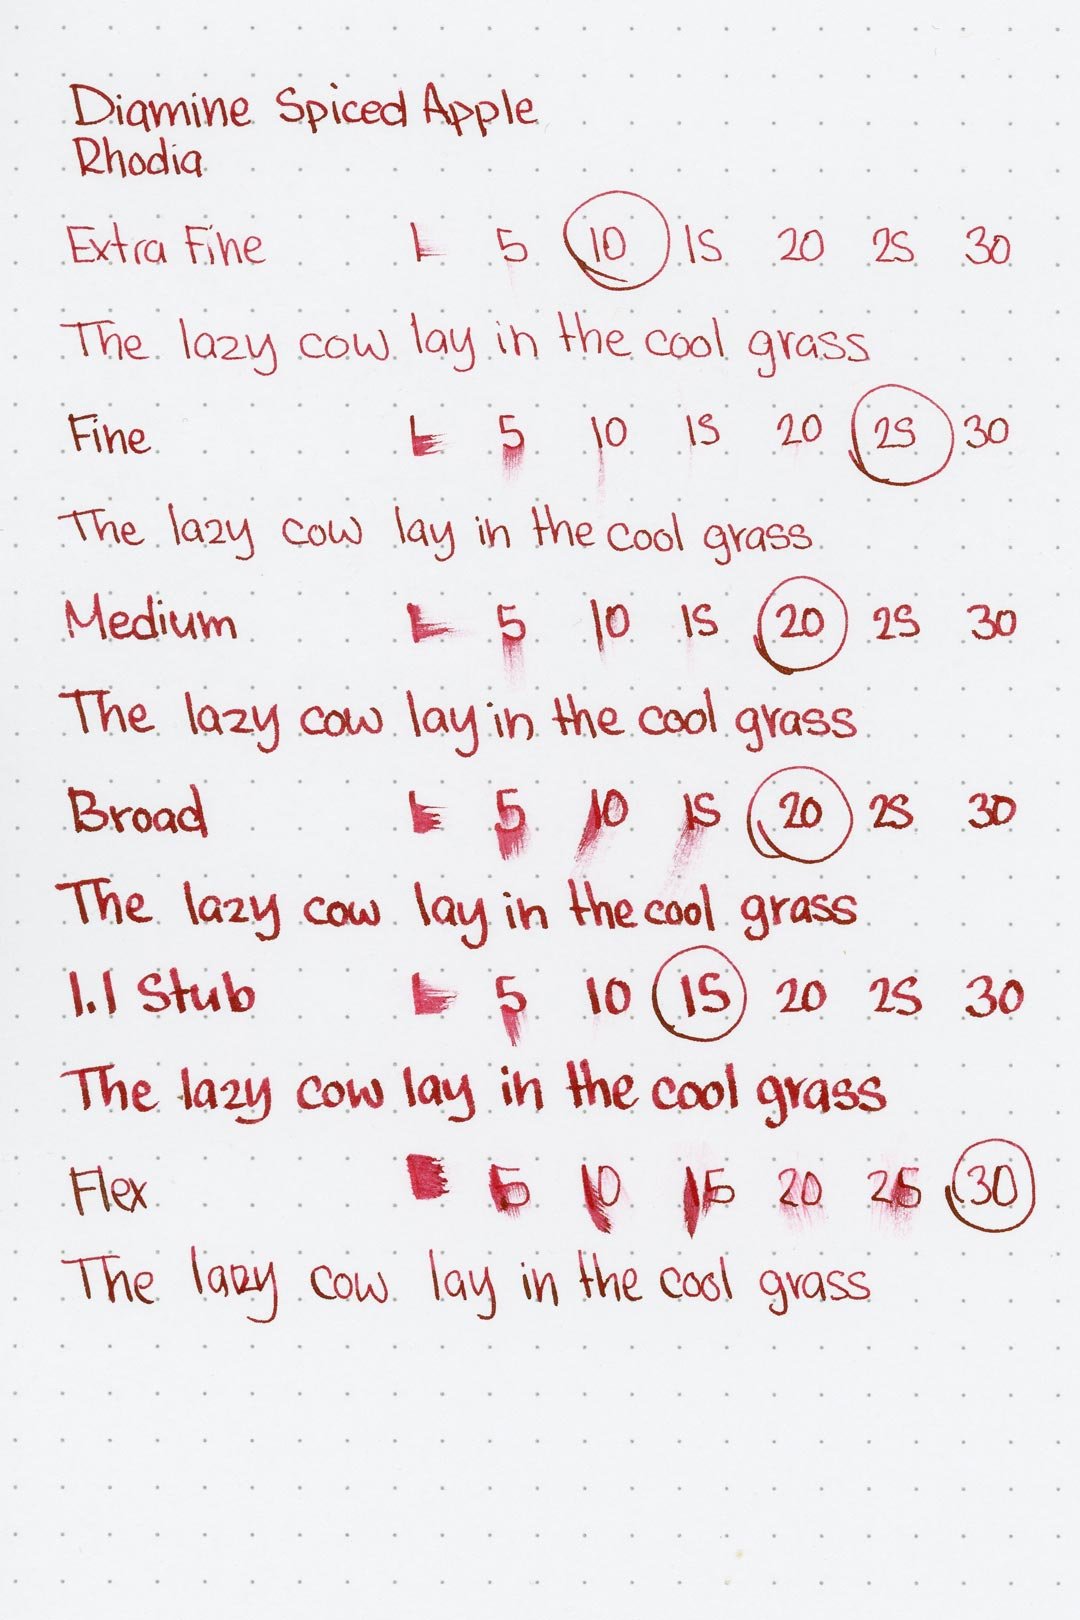 Diamine Spiced Apple
Rhodia
Extra Fine 1 5 10 15 20 25 30
The lazy cow lay in the cool grass
Fine 1 5 10 15 20 25 30
The lazy cow lay in the cool grass
Medium 1 5 10 15 20 25 30
The lazy cow lay in the cool grass
Broad 1 5 10 15 20 25 30
The lazy cow lay in the cool grass
1.1 Stub 1 5 10 15 20 25 30
The lazy cow lay in the cool grass
Flex 5 10 15 20 25 30
The lazy cow lay in the cool grass